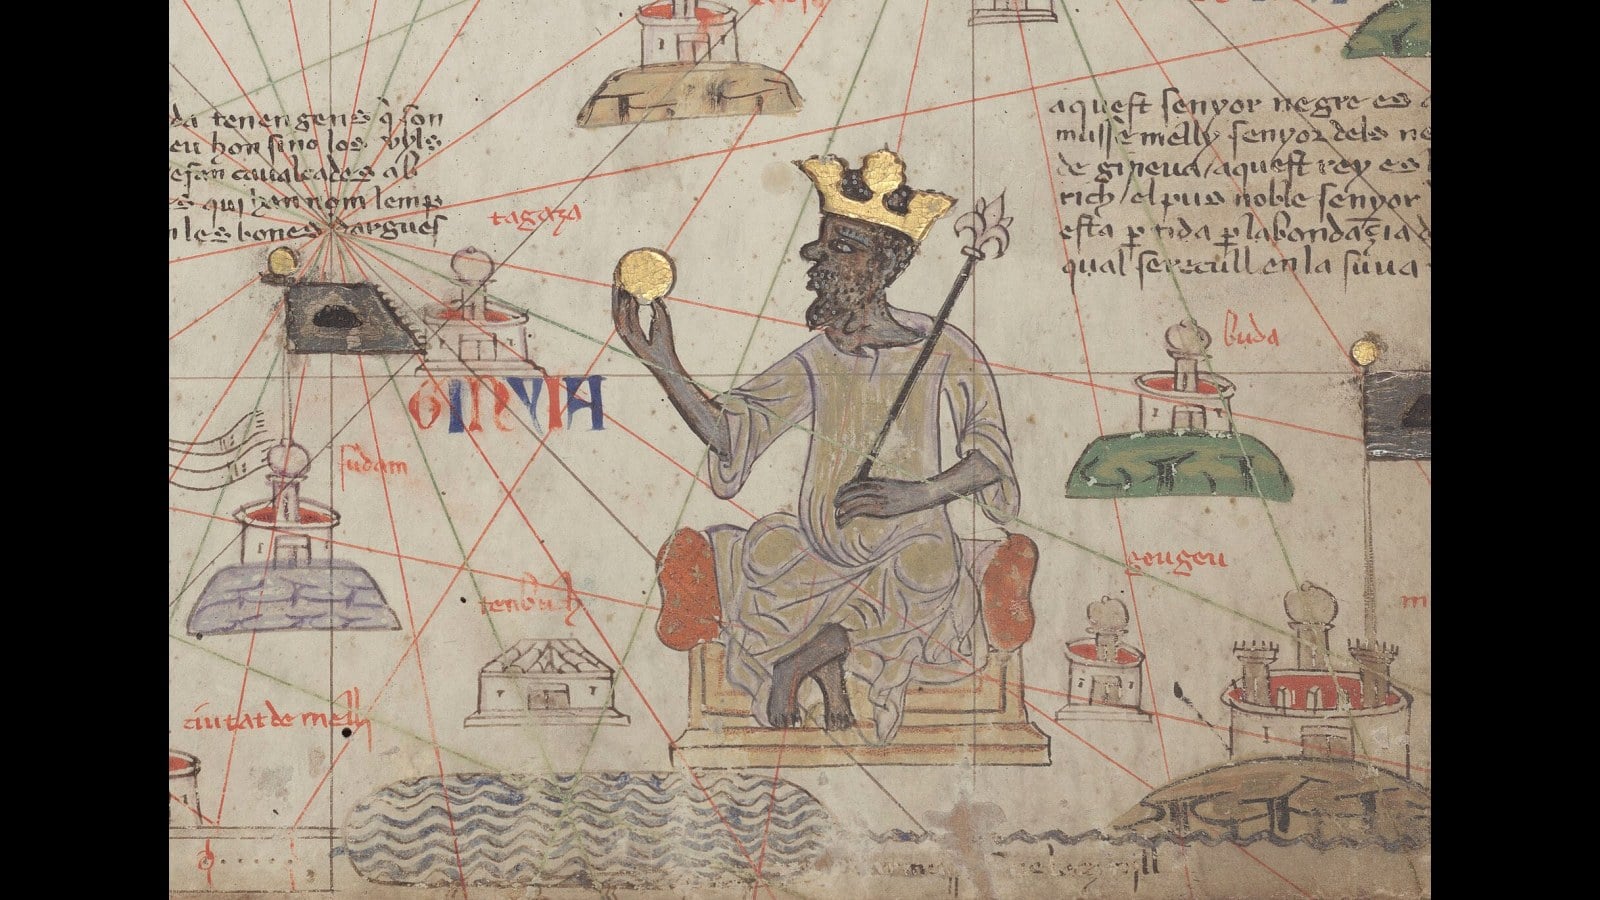 da tenen gens q̃ son
eu hon sino los vyls
e fan caualcades ab
es qui han nom lemp
n les bones dargues
tagaza
GINYIA
sudam
tenbuch
ciutat de melli
aquest senyor negre es
musse melly senyor dels ne
de gineua / aquest rey es l
rich / el pus noble senyor
esta ptida p labondãcia d
qual se recull en la suua
buda
geugeu
m